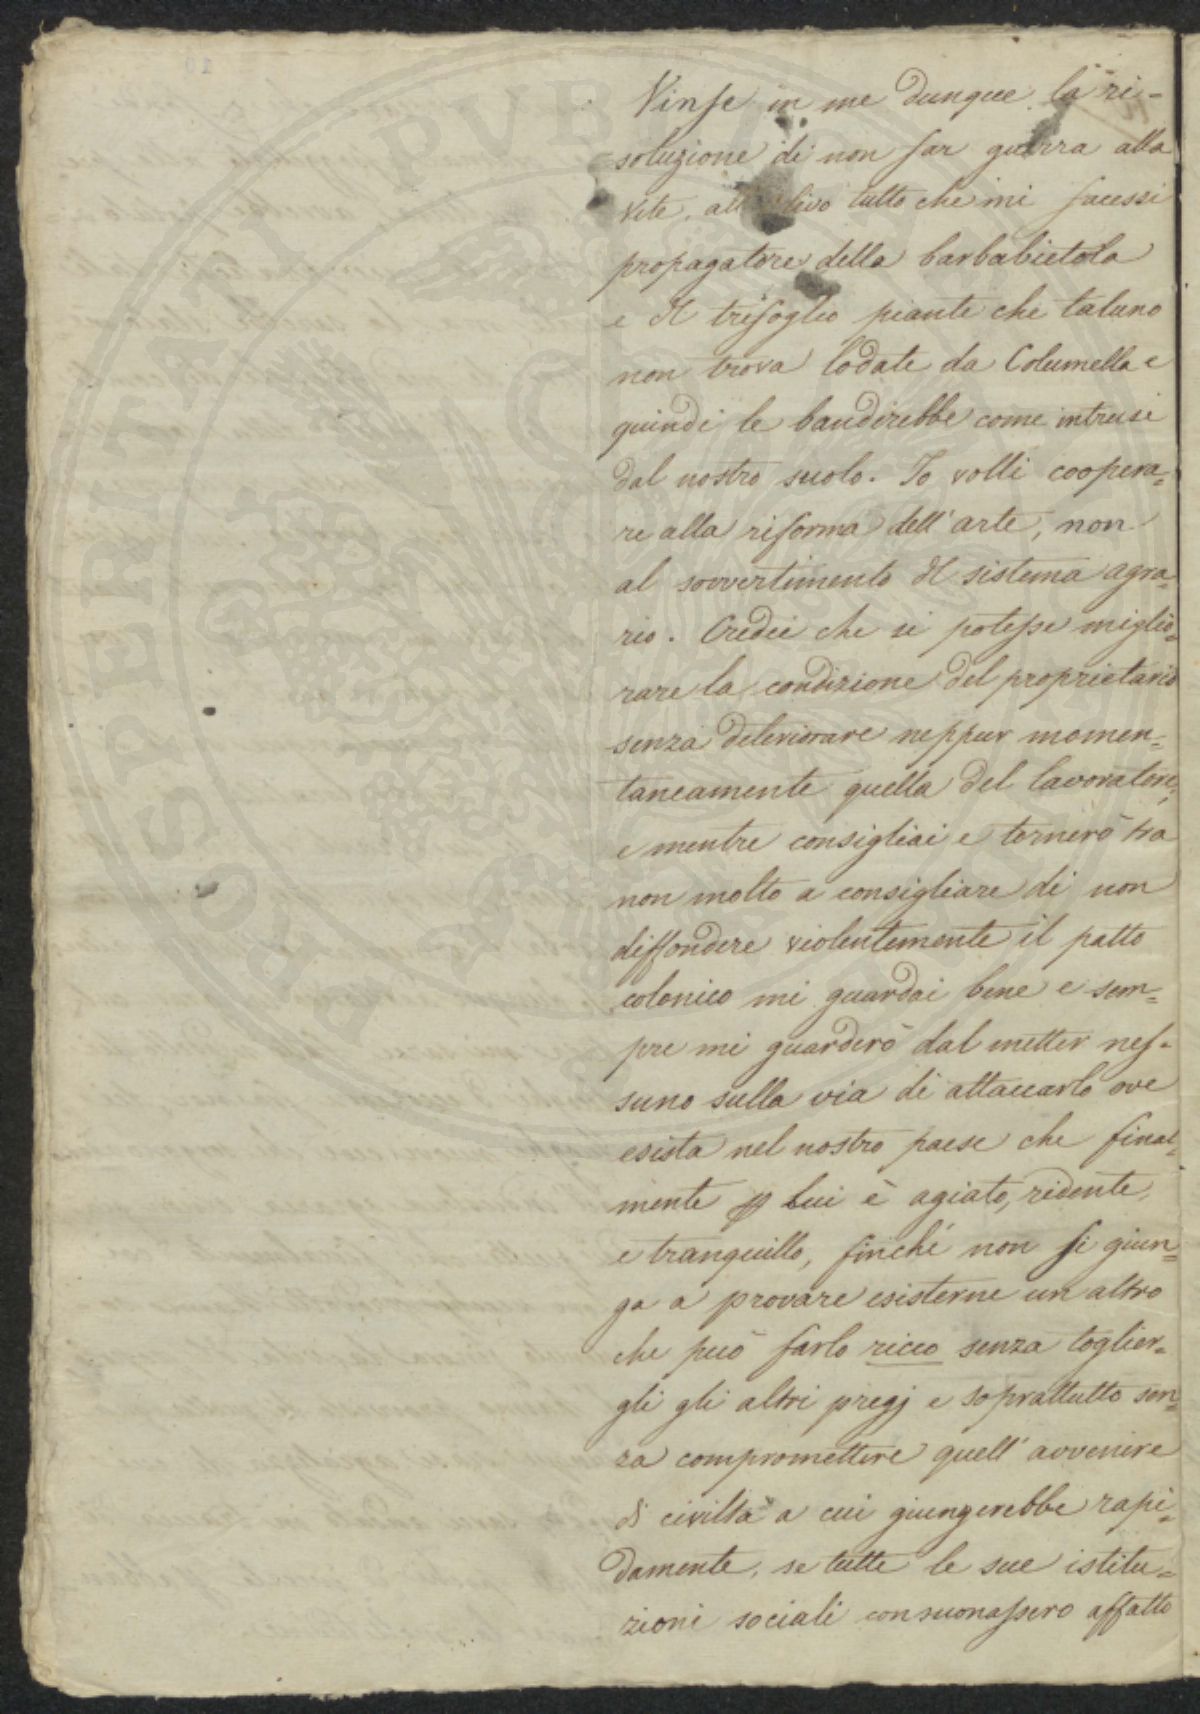 Vinse in me dunque la ri-
soluzione di non far guerra alla
vite, all'olivo tutto che mi facessi
propagatore della barbabietola
e Del trifoglio piante che taluno
non trova lodate da Columella e
quindi le bandirebbe come intrusi
dal nostro suolo. Io volli coopera=
re alla riforma dell'arte, non
al sovvertimento Del sistema agra=
rio. Credei che si potesse miglio=
rare la condizione del proprietario
senza deteriorare neppur momen=
taneamente quella del lavoratore;
e mentre consigliai e tornerò tra
non molto a consigliare di non
diffondere violentemente il patto
colonico mi guardai bene e sem=
pre mi guarderò dal metter nes-
suno sulla via di attaccarlo ove
esista nel nostro paese che final=
mente p lui è agiato, ridente,
e tranquillo, finché non si giun=
ga a provare esisterne un altro
che può farlo ricco senza toglier=
gli gli altri pregj e soprattutto sen=
za compromettere quell'avvenire
di civiltà a cui giungerebbe rapi=
damente, se tutte le sue istitu=
zioni sociali consuonassero affatto
PROSPERITATI PVBLICAE